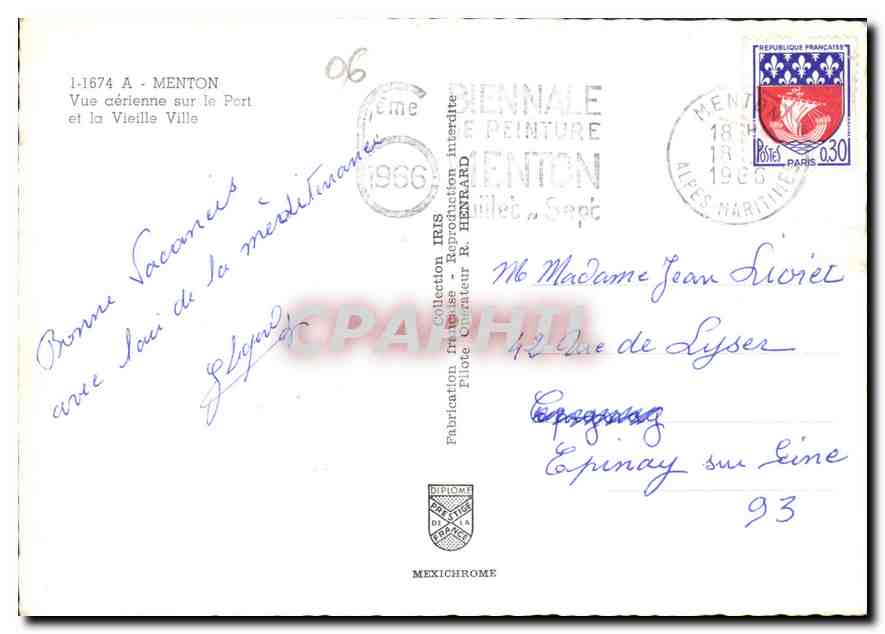 06
1-1674 A - MENTON
Vue aérienne sur le Port
et la Vieille Ville
6ème
1966
BIENNALE
DE PEINTURE
MENTON
Juillet .. Sept
MENTON
18 H
18
1966
ALPES-MARITIMES
REPUBLIQUE FRANÇAISE
POSTES
PARIS
0,30
Bonne Vacances
avec l'ami de la méditerranee
Collection IRIS
Fabrication française - Reproduction interdite
Pilote Opérateur R. HENRARD
CPAPHIL
M Madame Jean Liviet
42 Rue de Lyser
Epinay sur Seine
93
DIPLOME
PRESTIGE
DE LA
FRANCE
MEXICHROME